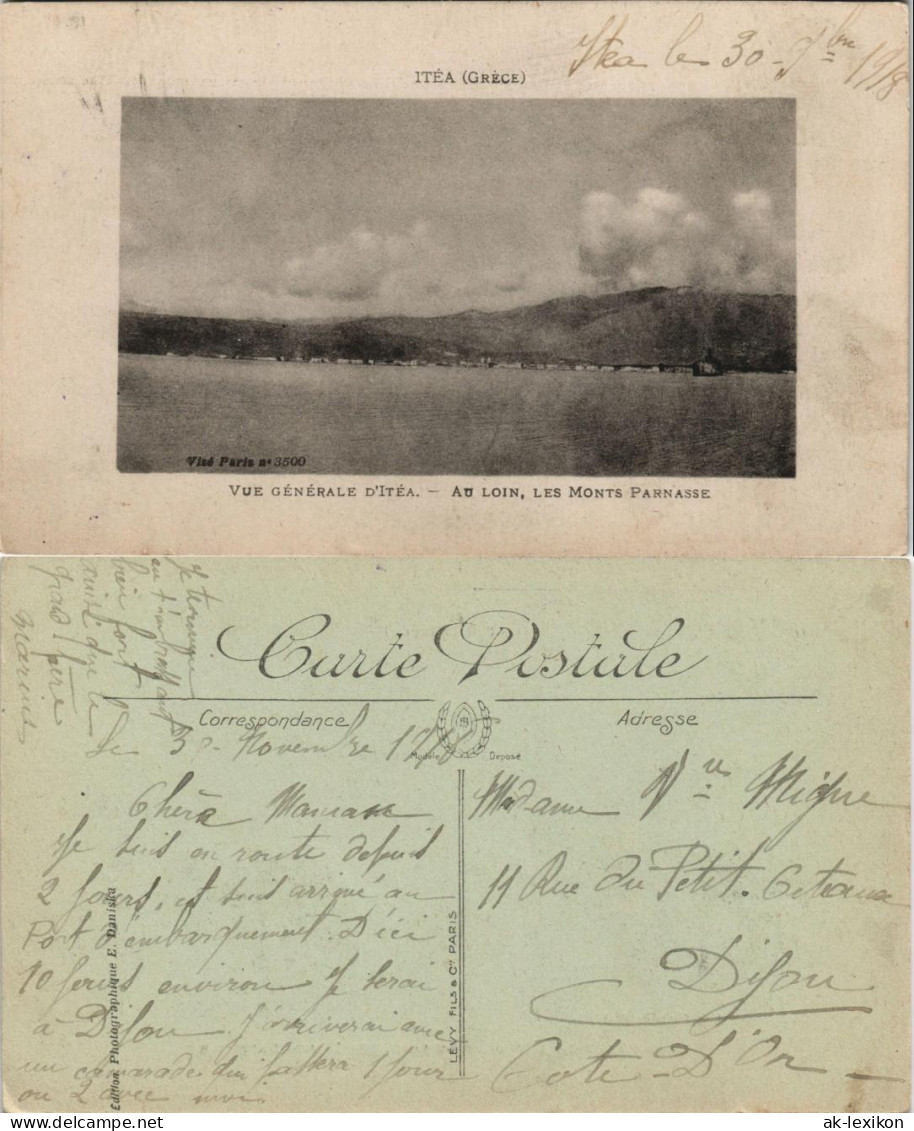 Itea le 30 - 9bre 1918
ITÉA (GRÈCE)
Visé Paris nº 3500
VUE GÉNÉRALE D'ITÉA. — AU LOIN, LES MONTS PARNASSE
Carte Postale
Correspondance
Adresse
Modèle Déposé
Le 30 Novembre
Chère Maman
Je suis en route depuis
2 jours, et suis arrivé au
Port d'embarquement. D'ici
10 jours environ Je serai
à Dijon J'arriverai avec
un camarade qui passera 1 jour
ou 2 avec moi.
Je termine
en t'embrassant
bien fort
ainsi que le
grand père
Marius
Madame Vve Migne
11 Rue du Petit. Citeaux
Dijon
Cote - D'Or -
Edition Photographique E. Daniska
LÉVY FILS & Cie PARIS
ak-lexikon
ak-lexikon.com